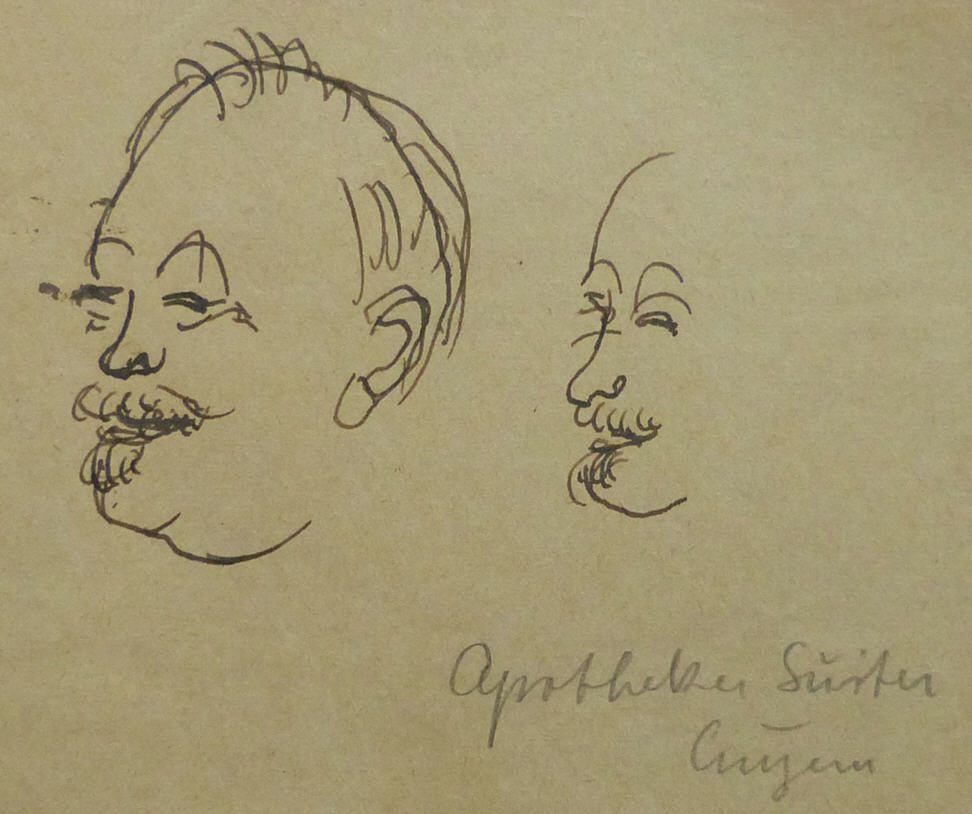 Apotheker Suiter
Luzern